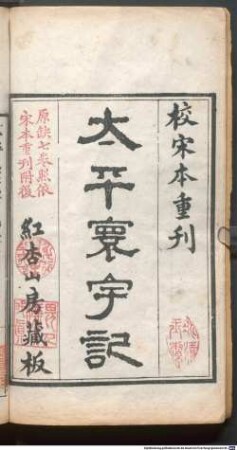 校宋本重刊
太平寰宇記
原缺七卷悉依
宋本重刊附後
紅杏山房藏板